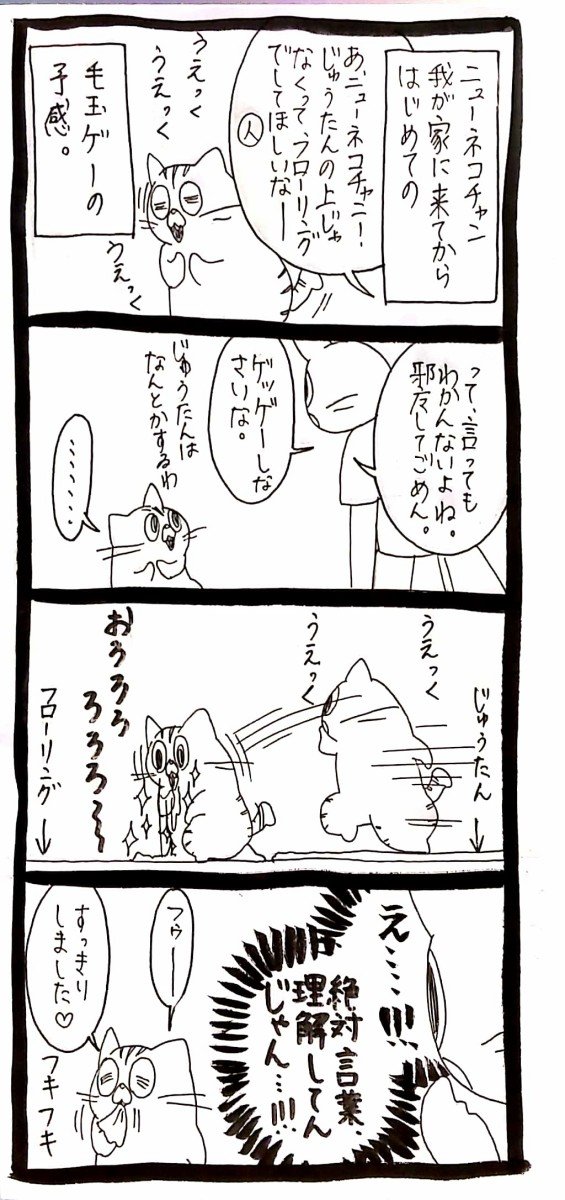 ニューネコチャン
我が家に来てから
はじめての
あ、ニューネコチャン!
じゅうたんの上じゃ
なくって、フローリング
でしてほしいなーー
人
うえっく
うえっく
うえっく
毛玉ゲーの
予感。
って、言っても
わかんないよね。
邪魔してごめん。
ゲッゲーしな
さいな。
じゅうたんは
なんとかするわ
……
じゅうたん
うえっく
うえっく
おろろろ
ろろろ〜
フローリング
え…!!!
絶対言葉
理解してん
じゃん…!!!
フゥーー
すっきり
しました♡
フキフキ